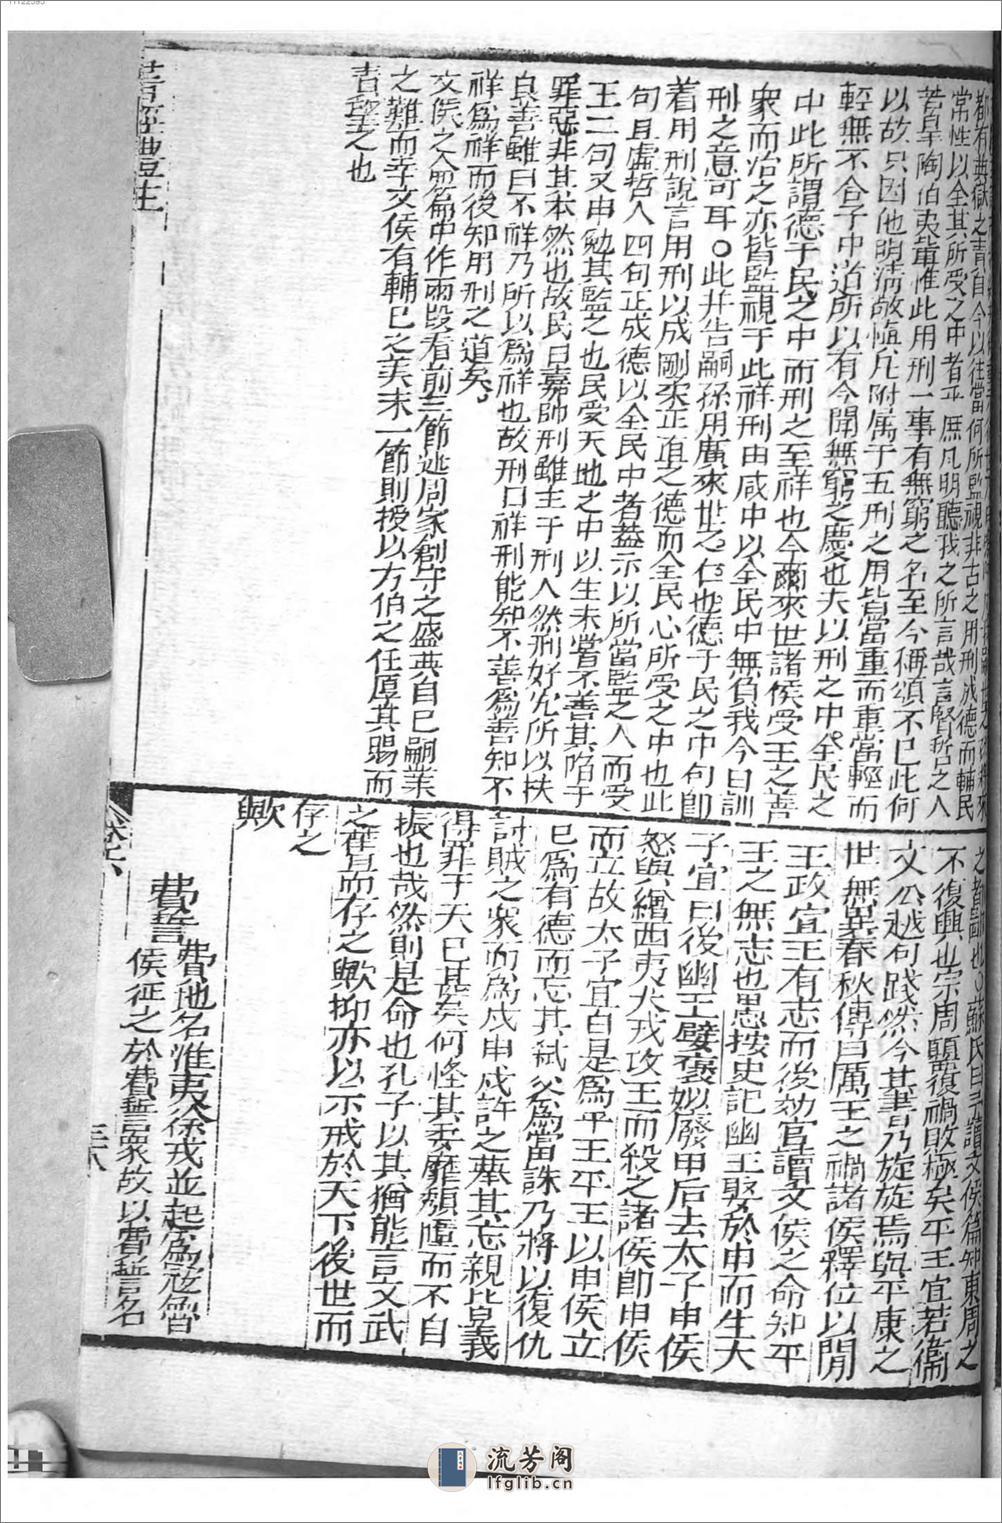 都有典獄之責自今以往當何所監視非古之用刑成德而輔民
常性以全其所受之中者乎庶凡明聽我之所言哉言賢哲之人
若皐陶伯夷輩惟此用刑一事有無窮之名至今稱頌不已此何
以故只因他明清敬慎凡附屬于五刑之用皆當重而重當輕而
輕無不合乎中道所以有今聞無窮之慶也夫以刑之中全民之
中此所謂德于民之中而刑之至祥也今爾來世諸侯受王之善
衆而治之亦皆監視于此祥刑由咸中以全民中無負我今日訓
刑之意可耳○此并告嗣孫用廣來世之仁也德于民之中句卽
着用刑說言用刑以成剛柔正直之德而全民心所受之中也此
句且虛哲人四句正成德以全民中者葢示以所當監之人而受
王二句又申勉其監之也民受天地之中以生未嘗不善其陷于
罪惡非其本然也故民曰嘉師刑雖主于刑人然刑奸宄所以扶
良善雖曰不祥乃所以爲祥也故刑曰祥刑能知不善爲善知不
祥爲祥而後知用刑之道矣
文侯之命篇中作兩段看前三節述周家創守之盛典自己嗣業
之難而幸文侯有輔己之美末一節則授以方伯之任厚其賜而
責望之也
書經體註
之都㫁也○蘇氏曰予讀文侯篇知東周之
不復興也宗周䫫覆禍敗極矣平王宜若衛
文公越句踐然今其書乃旋旋焉與平康之
世無異春秋傳曰厲王之禍諸侯釋位以閒
王政宣王有志而後効官讀文侯之命知平
王之無志也愚按史記幽王娶於申而生大
子宜臼後幽王嬖褒姒廢申后去太子申侯
怒與繒西夷犬戎攻王而殺之諸侯卽申侯
而立故太子宜臼是爲平王平王以申侯立
己爲有德而忘其弑父爲當誅乃將以復仇
討賊之衆而爲戍申戍許之舉其忘親背義
得罪于天已甚矣何怪其委靡頹墮而不自
振也哉然則是命也孔子以其猶能言文武
之舊而存之歟抑亦以示戒於天下後世而
存之
歟
費誓
費地名淮夷徐戎並起爲寇魯
侯征之於費誓衆故以費誓名
卷六
三八
流芳阁
lfglib.cn